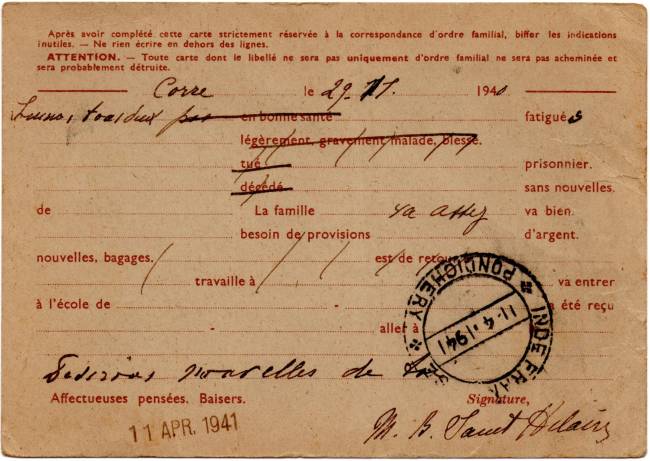 Après avoir complété cette carte strictement réservée à la correspondance d'ordre familial, biffer les indications
inutiles. — Ne rien écrire en dehors des lignes.
ATTENTION. — Toute carte dont le libellé ne sera pas uniquement d'ordre familial ne sera pas acheminée et
sera probablement détruite.
Corre le 29-11. 1940
tous deux pas en bonne santé fatigués
légèrement, gravement malade, blessé.
tué prisonnier.
décédé sans nouvelles.
de La famille va assez va bien.
besoin de provisions d'argent.
nouvelles, bagages. est de retour
travaille à va entrer
à l'école de a été reçu
aller à
Désirons nouvelles de
Affectueuses pensées. Baisers. Signature,
M. B. Saint Hilaire
11 APR. 1941
PONDICHERY
11-4-1941
INDE FRAN